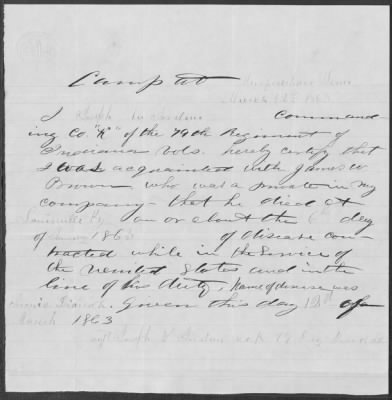 Camp at Murfreesboro Tenn
March 12th 1863
I Joseph W Jordan Command-
ing Co "K" of the 79th Regiment of
Indiana Vols. hereby certify that
I was acquainted with James W
Brown who was a private in my
company - that he died at
Louisville Ky on or about the 6th day
of 1863 of disease con-
tracted while in the Service of
the United States and in the
line of his duty, Name of disease was
Chronic Diarrhea Given this day 12th of
March 1863
Joseph W Co. K 79 Reg